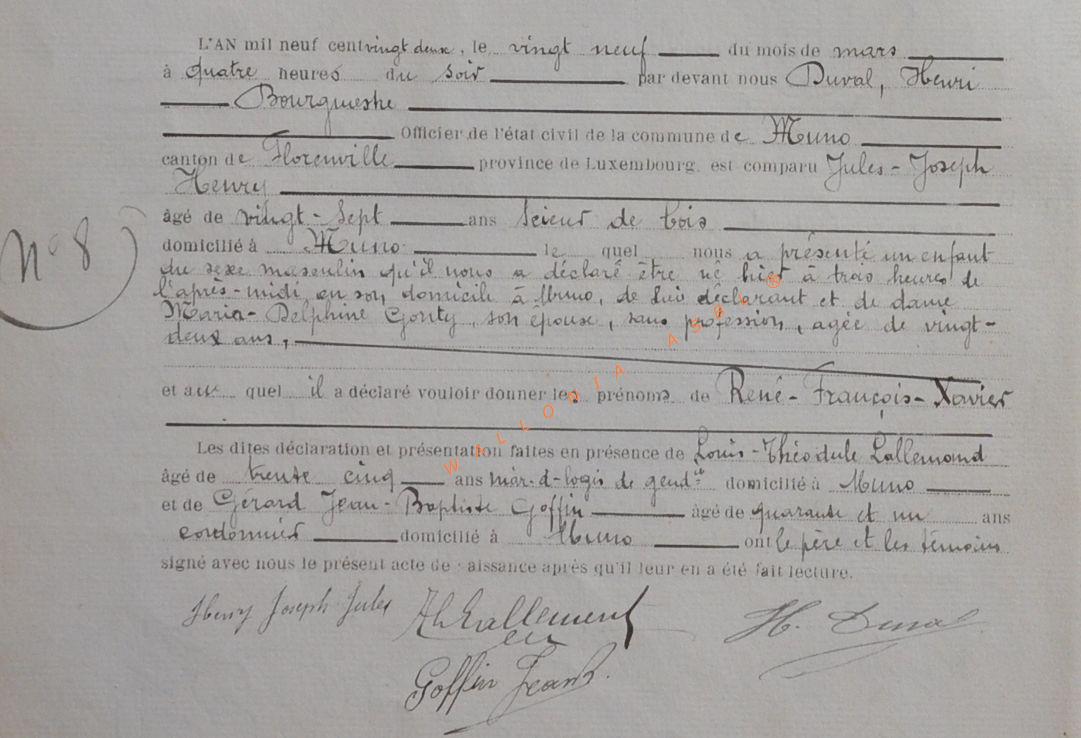 L'AN mil neuf cent vingt deux, le vingt neuf du mois de mars
à quatre heures du soir par devant nous Duval, Henri
Bourgmestre
Officier de l'état civil de la commune de Muno
canton de Florenville province de Luxembourg, est comparu Jules-Joseph
Henry
âgé de vingt-sept ans scieur de bois
N° 8
domicilié à Muno le quel nous a présenté un enfant
du sexe masculin qu'il nous a déclaré être né hier à trois heures de
l'après-midi, en son domicile à Muno, de lui déclarant et de dame
Maria-Delphine Gonty, son épouse, sans profession, agée de vingt-
deux ans,
et au quel il a déclaré vouloir donner les prénoms de René-François-Xavier
WALLONIA ASBL ©
Les dites déclaration et présentation faites en présence de Louis-Théodule Lallemand
âgé de trente cinq ans mar. d-logis de gend.ie domicilié à Muno
et de Gérard Jean-Baptiste Goffin âgé de quarante et un ans
cordonnier domicilié à Muno ont le père et les témoins
signé avec nous le présent acte de naissance après qu'il leur en a été fait lecture.
Henry Joseph Jules Lallement H. Duval
Goffin Jean B.